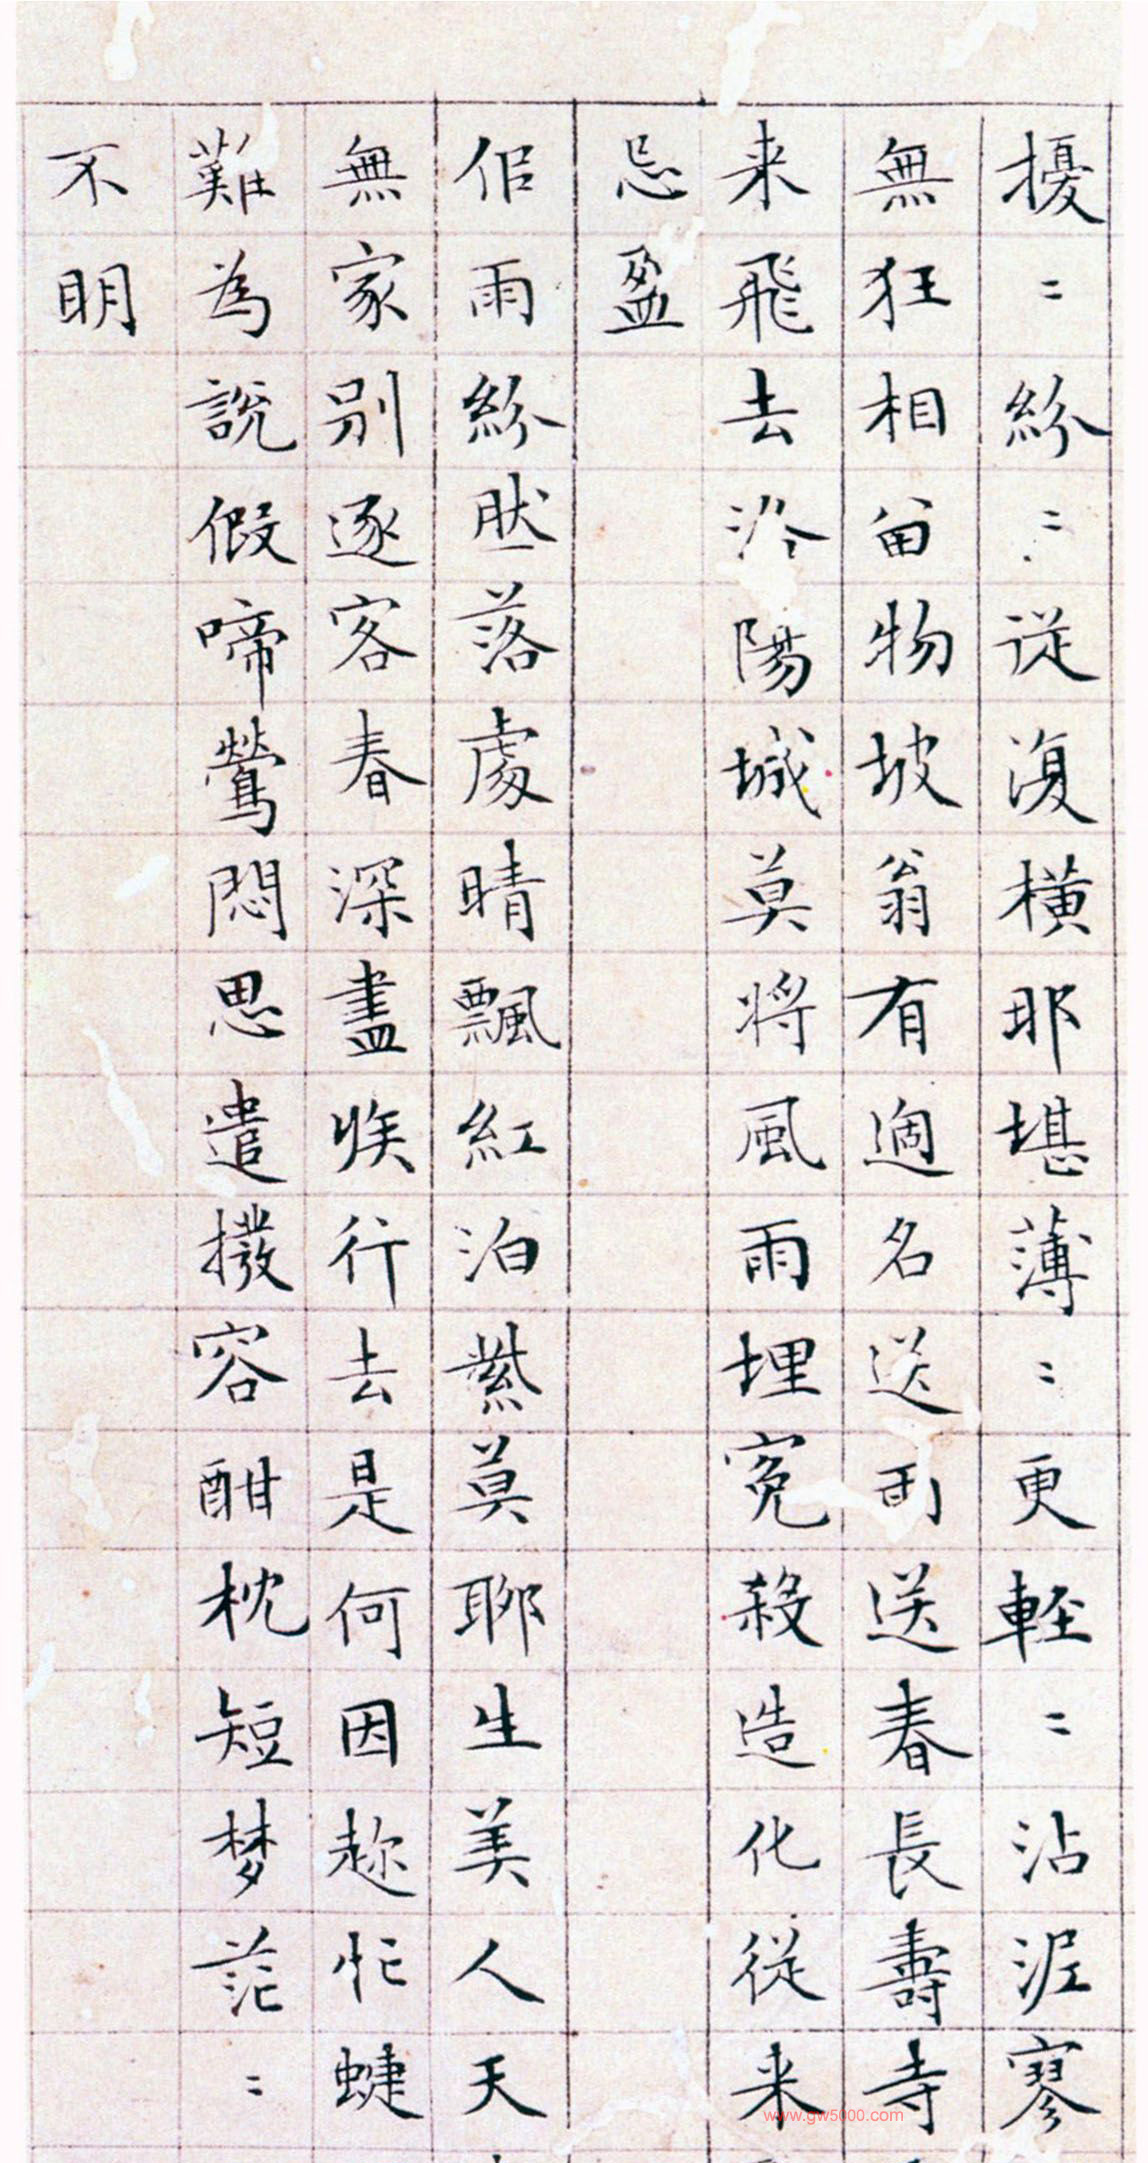 擾〻紛〻從復橫那堪薄〻更輕〻沾泥寥
無狂相留物坡翁有過名送雨送春長壽寺
来飛去洛陽城莫将風雨埋冤殺造化從来
忌盈
佀雨紛然落處晴飄紅泊紫莫聊生美人天
無家别逐客春深盡族行去是何因趂忙蜨
難為說假啼鶯悶思遣撥容酣枕短梦茫〻
不明
www.gw5000.com